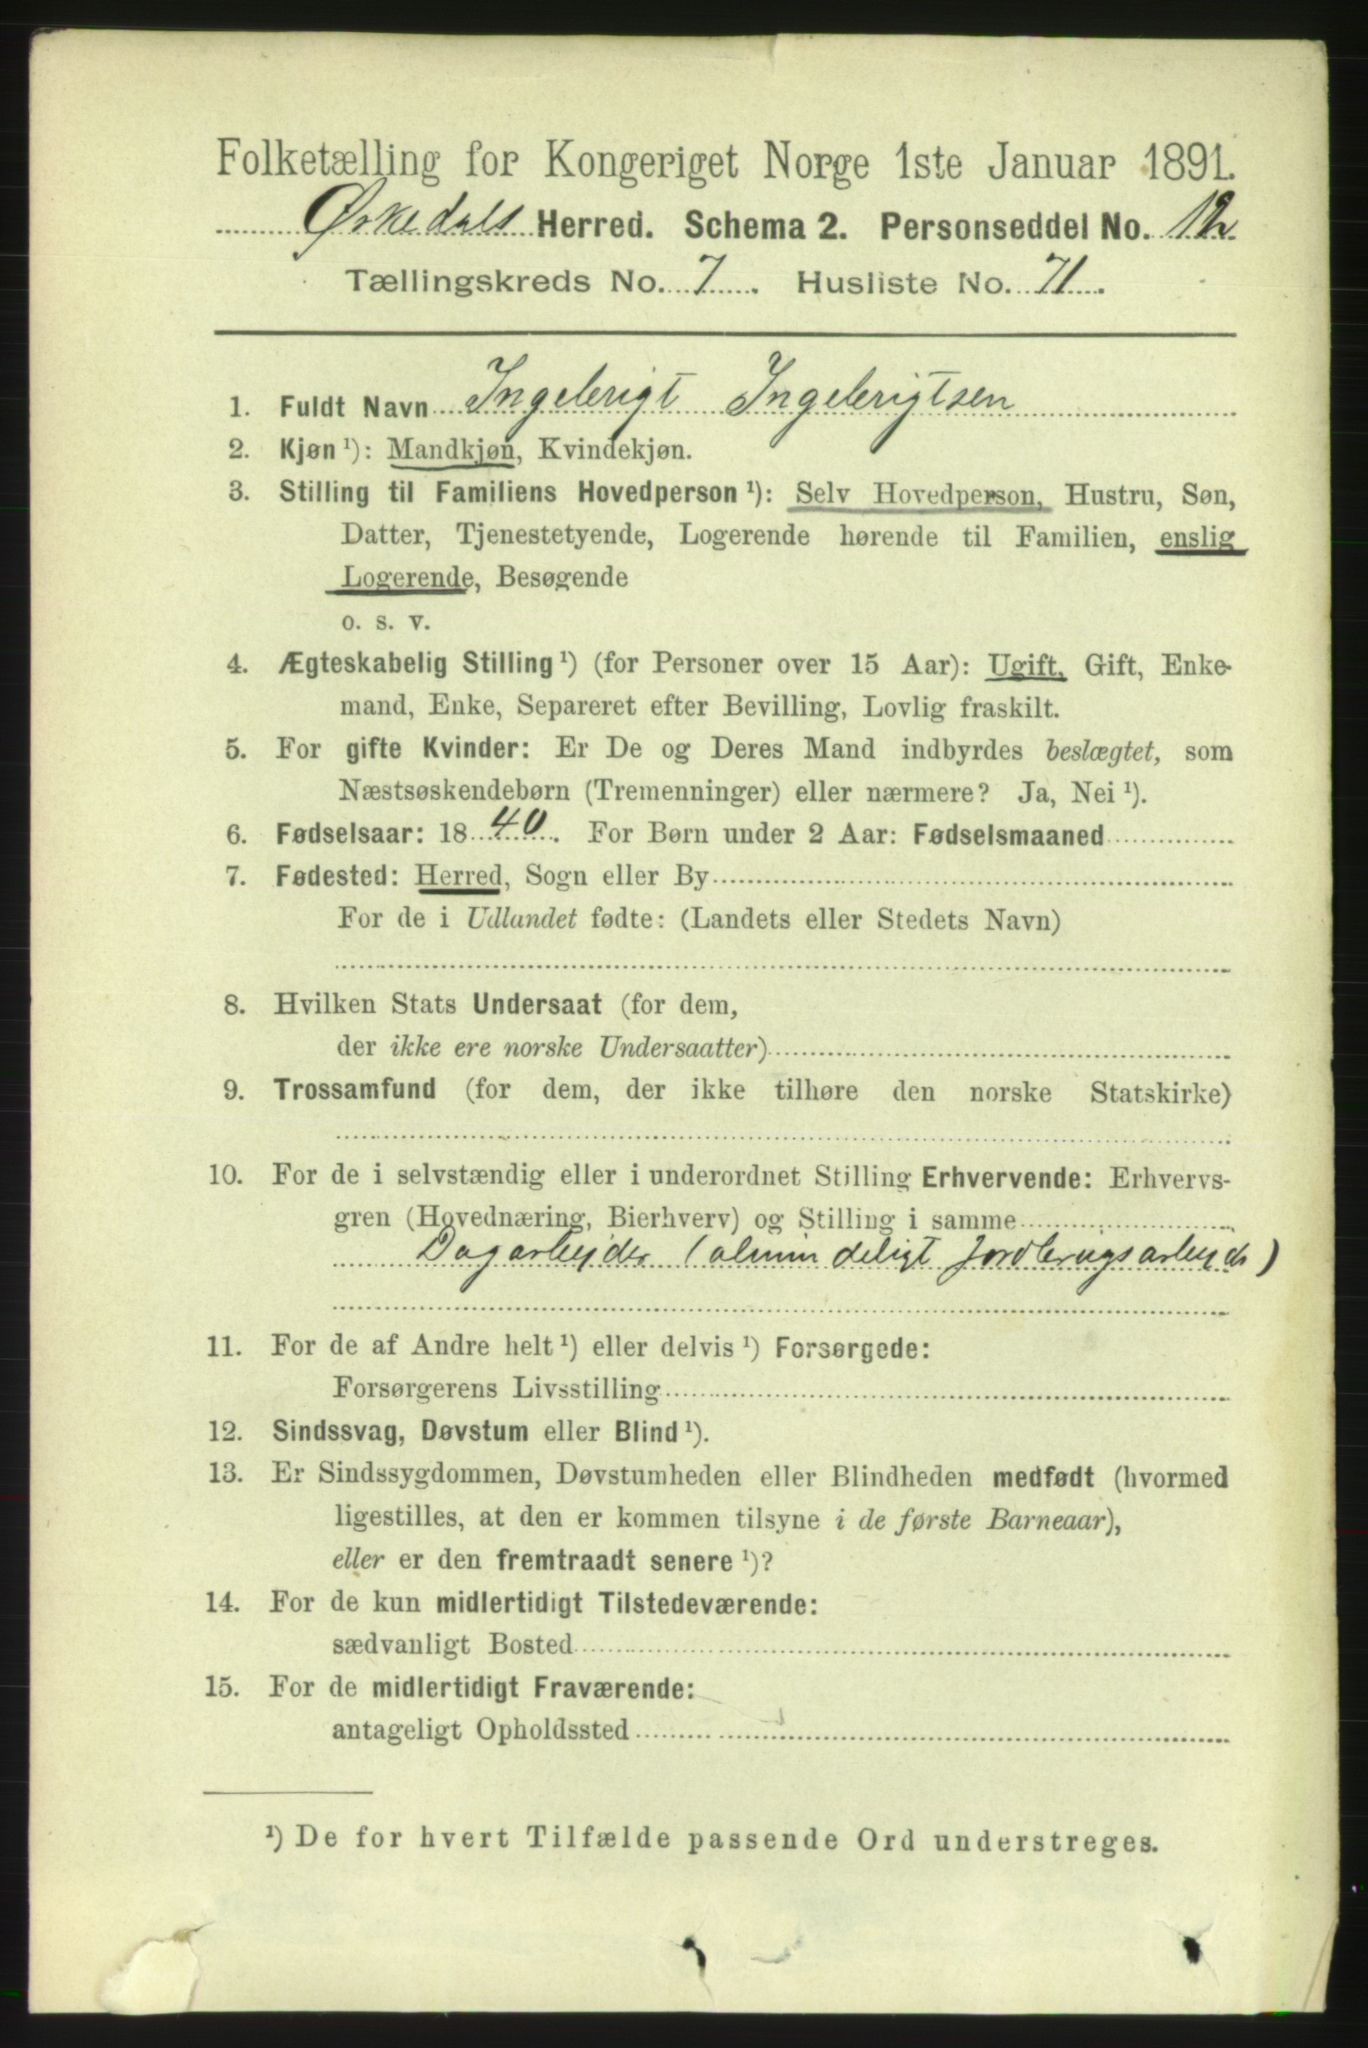 Folketælling for Kongeriget Norge 1ste Januar 1891.
Ørkedals Herred. Schema 2. Personseddel No. 12
Tællingskreds No. 7. Husliste No. 71.
1. Fuldt Navn Ingebrigt Ingebrigtsen
2. Kjøn ¹): Mandkjøn, Kvindekjøn.
3. Stilling til Familiens Hovedperson ¹): Selv Hovedperson, Hustru, Søn,
Datter, Tjenestetyende, Logerende hørende til Familien, enslig
Logerende, Besøgende
o. s. v.
4. Ægteskabelig Stilling ¹) (for Personer over 15 Aar): Ugift, Gift, Enke-
mand, Enke, Separeret efter Bevilling, Lovlig fraskilt.
5. For gifte Kvinder: Er De og Deres Mand indbyrdes beslægtet, som
Næstsøskendebørn (Tremenninger) eller nærmere? Ja, Nei ¹).
6. Fødselsaar: 1840. For Børn under 2 Aar: Fødselsmaaned
7. Fødested: Herred, Sogn eller By
For de i Udlandet fødte: (Landets eller Stedets Navn)
8. Hvilken Stats Undersaat (for dem,
der ikke ere norske Undersaatter)
9. Trossamfund (for dem, der ikke tilhøre den norske Statskirke)
10. For de i selvstændig eller i underordnet Stilling Erhvervende: Erhvervs-
gren (Hovednæring, Bierhverv) og Stilling i samme
Dagarbejder (almindeligt Jordbrugsarbejde)
11. For de af Andre helt ¹) eller delvis ¹) Forsørgede:
Forsørgerens Livsstilling
12. Sindssvag, Døvstum eller Blind ¹).
13. Er Sindssygdommen, Døvstumheden eller Blindheden medfødt (hvormed
ligestilles, at den er kommen tilsyne i de første Barneaar),
eller er den fremtraadt senere ¹)?
14. For de kun midlertidigt Tilstedeværende:
sædvanligt Bosted
15. For de midlertidigt Fraværende:
antageligt Opholdssted
¹) De for hvert Tilfælde passende Ord understreges.